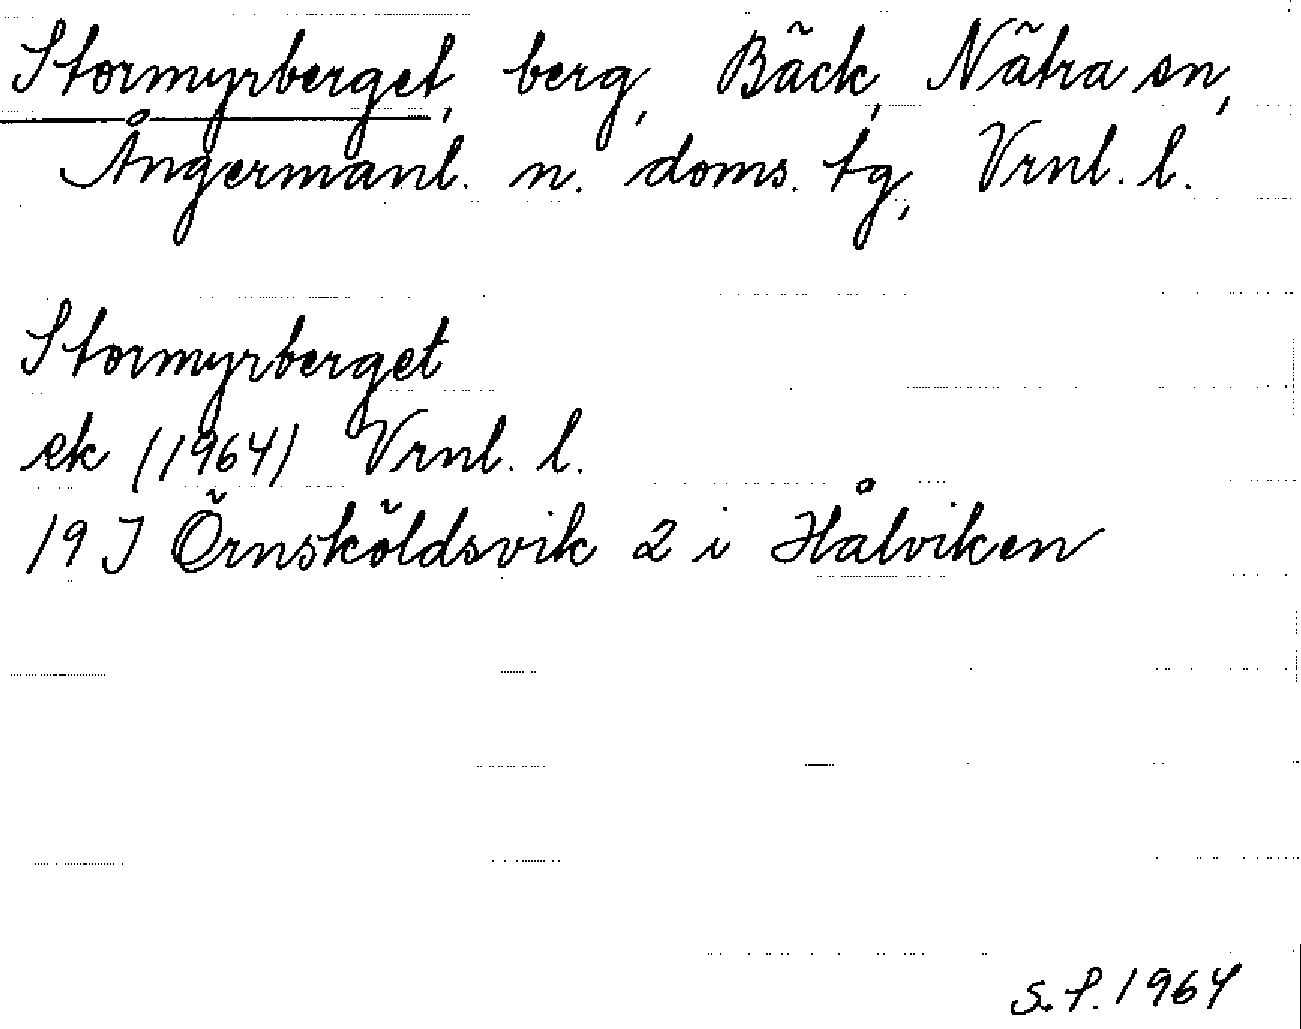 Stormyrberget, berg, Bäck, Nätra sn,
Ångermanl. n. doms. tg, Vrnl. l.
Stormyrberget
ek (1964) Vrnl. l.
19 J Örnsköldsvik 2 i Hålviken
S.f. 1964